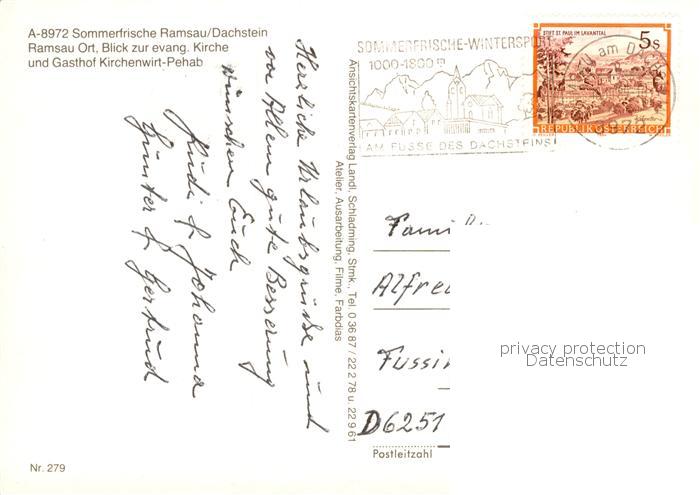 A-8972 Sommerfrische Ramsau/Dachstein
Ramsau Ort, Blick zur evang. Kirche
und Gasthof Kirchenwirt-Pehab
Herzliche Urlaubsgrüße und
vor Allem gute Besserung
wünschen Euch
Rudi & Johanna
Günter & Gertrud
Nr. 279
Ansichtskartenverlag Landl, Schladming, Stmk., Tel. 0 36 87 / 22 2 78 u. 22 9 61
Atelier, Ausarbeitung, Filme, Farbdias
SOMMERFRISCHE-WINTERSPORT
1000-1800 m
AM FUSSE DES DACHSTEINS
STIFT ST. PAUL IM LAVANTTAL
5 S
REPUBLIK ÖSTERREICH
am
Fami
Alfred
Fussin
D6251
Postleitzahl
privacy protection
Datenschutz